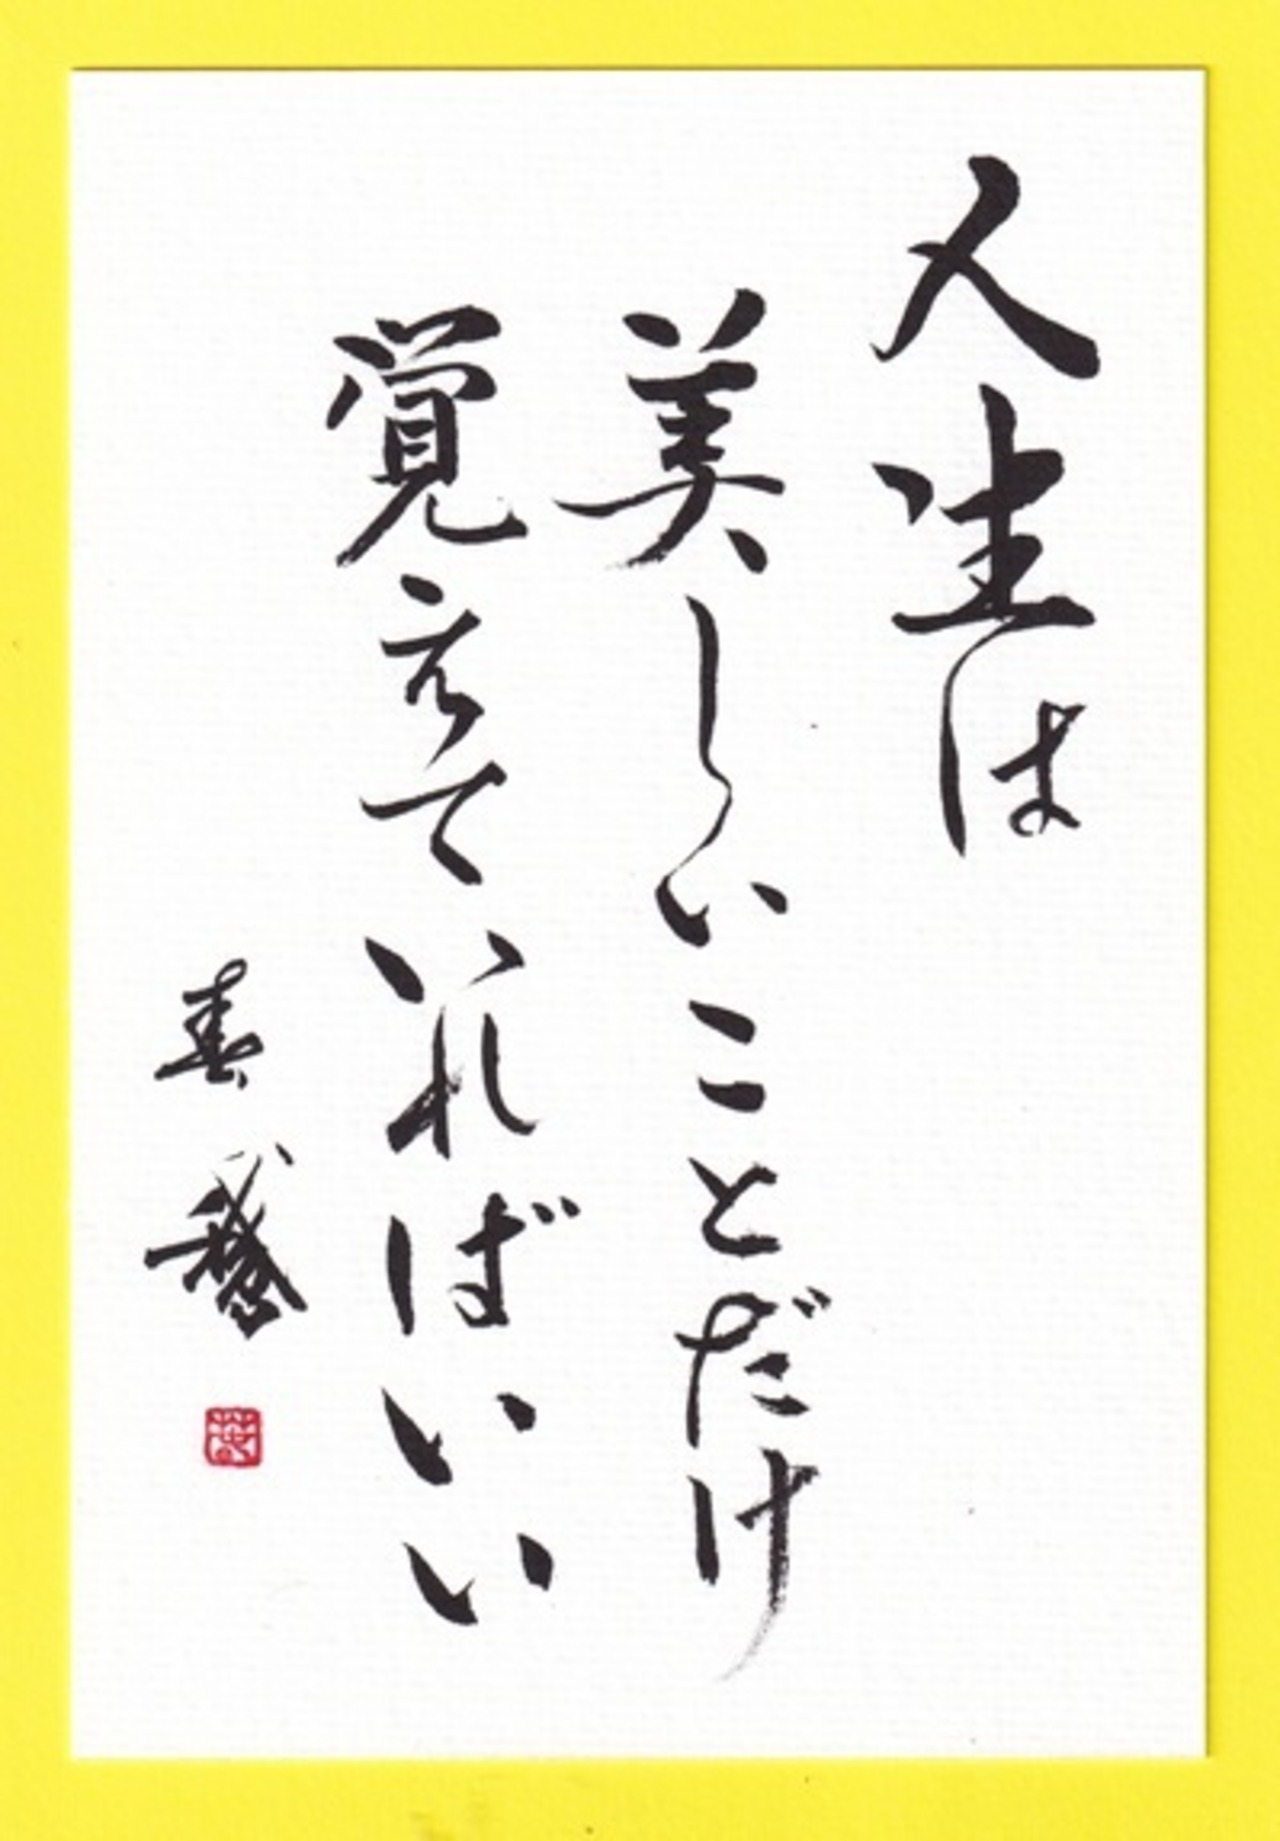 人生は
美しいことだけ
覚えていればいい
春